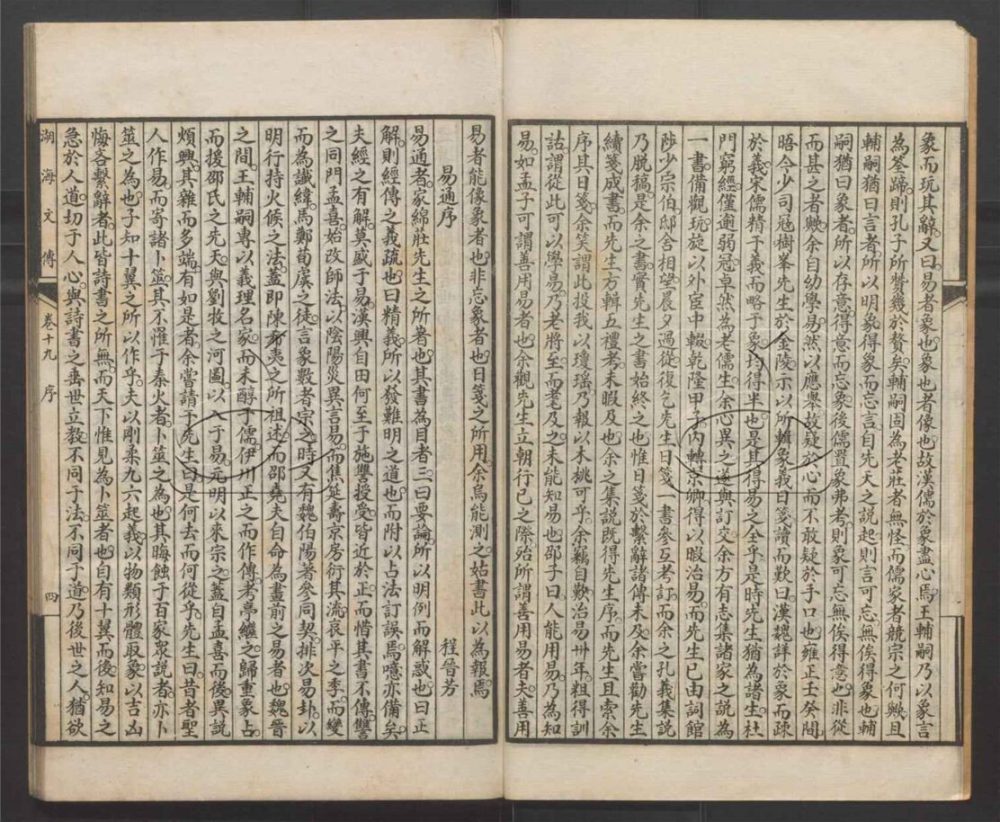 象而玩其辭又曰易者象也象也者像也故漢儒於象盡心焉王輔嗣乃以象言
為筌蹄則孔子所贊幾於贅矣輔嗣固為老莊者無怪而儒家者競宗之何歟且
輔嗣猶曰言者所以明象得象而忘言自先天之說起則言可忘無俟得象也輔
嗣猶曰象者所以存意得意而忘象後儒置象弗者則象可忘無俟得意也非從
而甚之者歟余自幼學易然以應舉故疑於心而不敢疑於手口也雍正壬癸間
晤今少司冠樹峯先生於金陵示以所輯象義日箋讀而歎曰漢魏詳於象而疎
於義宋儒精于義而略于象均得半也是其得易之全乎是時先生猶為諸生杜
門窮經僅逾弱冠卓然為老儒生余心異之遂與訂交余方有志集諸家之說為
一書備觀玩旋以外宦中輟乾隆甲子內轉京卿得以暇治易而先生已由詞館
陟少宗伯邸舍相望晨夕過從復乞先生日箋一書參互考訂而余之孔義集說
乃脫稿是余之書實先生之書始終之也惟日箋於繫辭諸傳未及余嘗勸先生
續箋成書而先生方輯五禮考未暇及也余之集說既得先生序而先生且索余
序其日箋余笑謂此投我以瓊瑤乃報以木桃可乎余竊自歎治易卅年粗得訓
詁謂從此可以學易乃老將至而耄及之未能知易也邵子曰人能用易乃為知
易如孟子可謂善用易者也余觀先生立朝行已之際殆所謂善用易者夫善用
易者能像象者也非忘象者也日箋之所用余烏能測之姑書此以為報焉
易通序
程晉芳
易通者家綿莊先生之所著也其書為目者三曰要論所以明例而解惑也曰正
解則經傳之義疏也曰精義所以發難明之道也而附以占法訂誤焉噫亦備矣
夫經之有解莫盛于易漢興自田何至于施讐授受皆近於正而惜其書不傳讐
之同門孟喜始改師法以陰陽災異言易而焦延壽京房衍其流哀平之季而變
而為讖緯馬鄭荀虞之徒言象數者宗之時又有魏伯陽著參同契排次易卦以
明行持火候之法蓋即陳希夷之所祖述而邵堯夫自命為畫前之易者也魏晉
之間王輔嗣專以義理名家而未醇于儒伊川正之而作傳考亭繼之歸重象占
而援邵氏之先天與劉牧之河圖以入于易元明以來宗之蓋自孟喜而後異說
煩興其雜而多端有如是者余嘗請于先生曰是何去而何從乎先生曰昔者聖
人作易而寄諸卜筮其不罹于秦火者卜筮之為也其晦蝕于百家眾說者亦卜
筮之之為也子知十翼之所以作乎夫以剛柔九六起義以物類形體取象以吉凶
悔吝繫辭者此皆詩書之所無而天下惟見為卜筮者也自有十翼而後知易之
急於人道切于人心與詩書之垂世立教不同于法不同于道乃後世之人猶欲
湖海文傳 卷十九 序 四